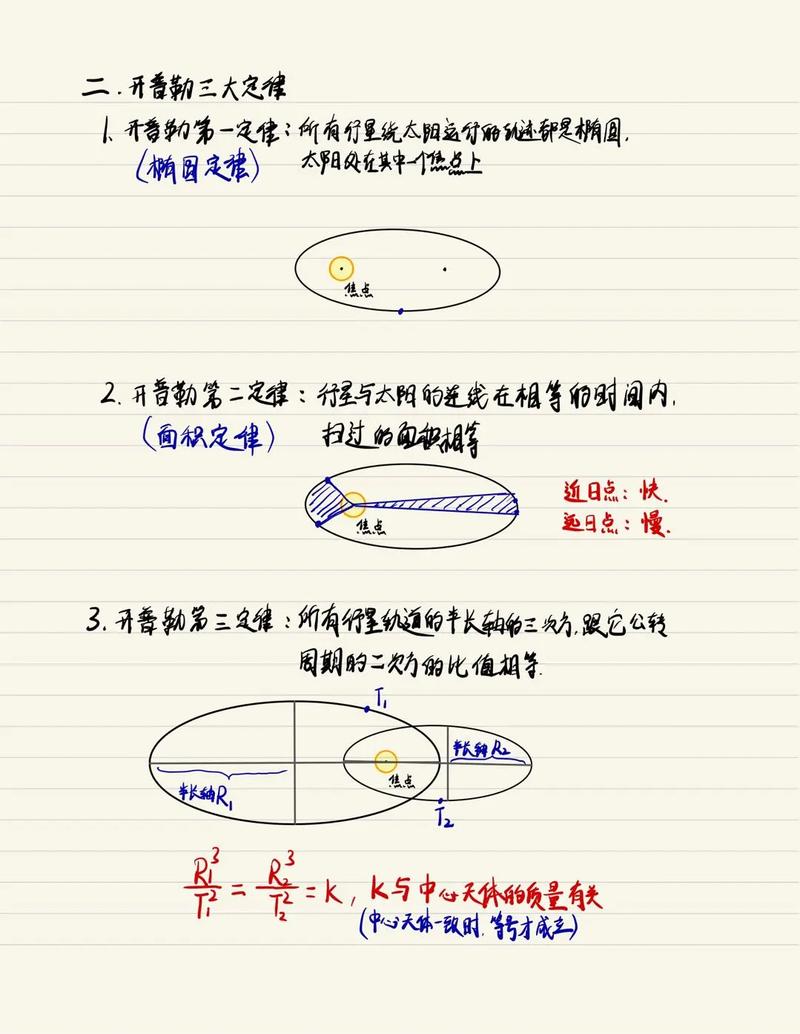 二.开普勒三大定律
1.开普勒第一定律：所有行星绕太阳运行的轨迹都是椭圆.
(椭圆定律) 太阳处在其中一个焦点上
焦点
2.开普勒第二定律：行星与太阳的连线在相等的时间内,
(面积定律) 扫过的面积相等
近日点：快.
焦点
远日点：慢.
3.开普勒第三定律：所有行星轨道的半长轴的三次方,跟它公转
周期的二次方的比值相等.
T₁
半长轴R₂
焦点
半长轴R₁
T₂
R₁³/T₁² = R₂³/T₂² = K, K与中心天体的质量有关
(中心天体一致时,等号才成立)